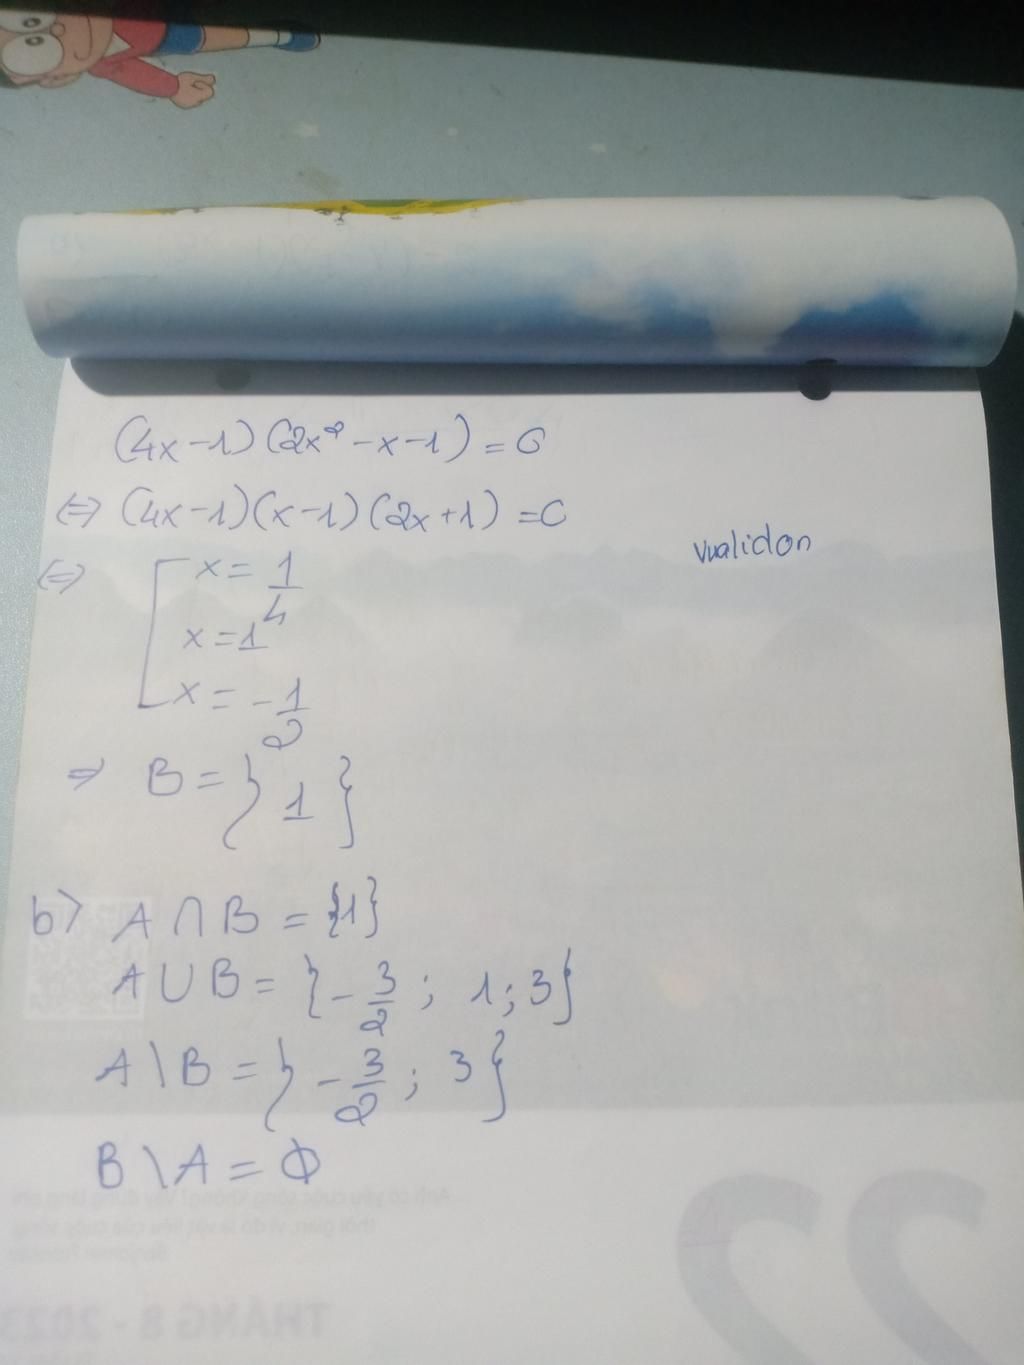 (4x-1)(2x²-x-1)=0
⇔ (4x-1)(x-1)(2x+1)=0
vualidon
⇔ [ x = 1/4
x = 1
x = -1/2
⇒ B = { 1 }
b) A ∩ B = {1}
A ∪ B = { -3/2 ; 1 ; 3 }
A \ B = { -3/2 ; 3 }
B \ A = Φ
22
THÁNG 8 - 2023